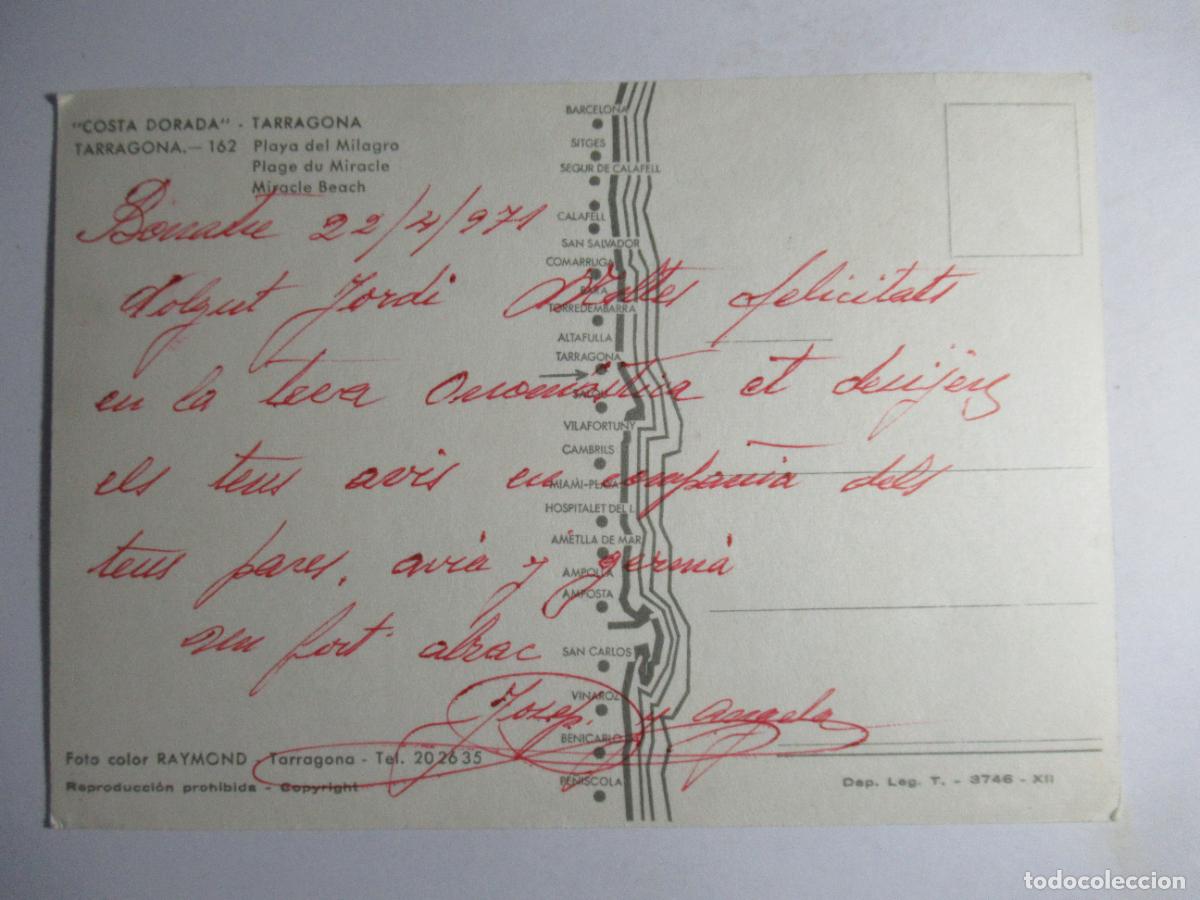 "COSTA DORADA" - TARRAGONA
TARRAGONA.— 162 Playa del Milagro
Plage du Miracle
Miracle Beach
22/4/971
Volgut Jordi Moltes felicitats
en la teva onomástica et desitjem
els teus avis en compañia dels
teus pares, avia y germá
un fort abraç
Josep y Angela
BARCELONA
SITGES
SEGUR DE CALAFELL
CALAFELL
SAN SALVADOR
COMARRUGA
BARA
TORREDEMBARRA
ALTAFULLA
TARRAGONA
SALOU
VILAFORTUNY
CAMBRILS
MIAMI-PLAYA
HOSPITALET DEL I.
AMETLLA DE MAR
AMPOLLA
AMPOSTA
SAN CARLOS
VINAROZ
BENICARLO
PEÑISCOLA
Foto color RAYMOND - Tarragona - Tel. 20 26 35
Reproducción prohibida - Copyright
Dep. Leg. T. - 3746 - XII
todocoleccion